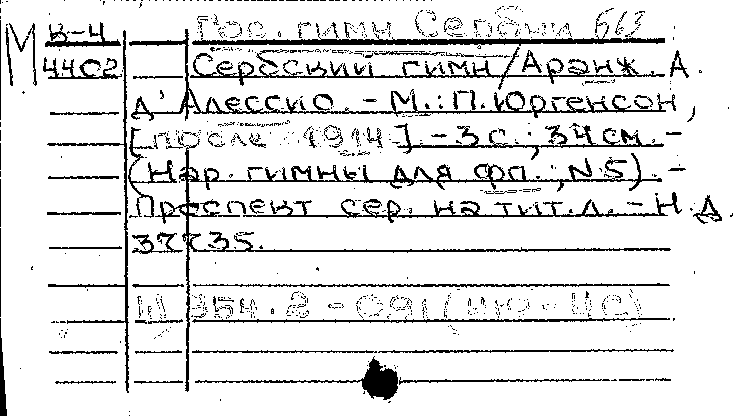 М В-4 Гос. гимн Сербии
4402 Сербский гимн/Аранж. А.
д'Алессио. - М.: П. Юргенсон,
[после 1914]. - 3 с.; 34 см. -
(Нар. гимны для фп.; N 5). -
Проспект сер. на тит. л. - Н.Д.
37735.
Ш 354.2-091(4Ю-4С)